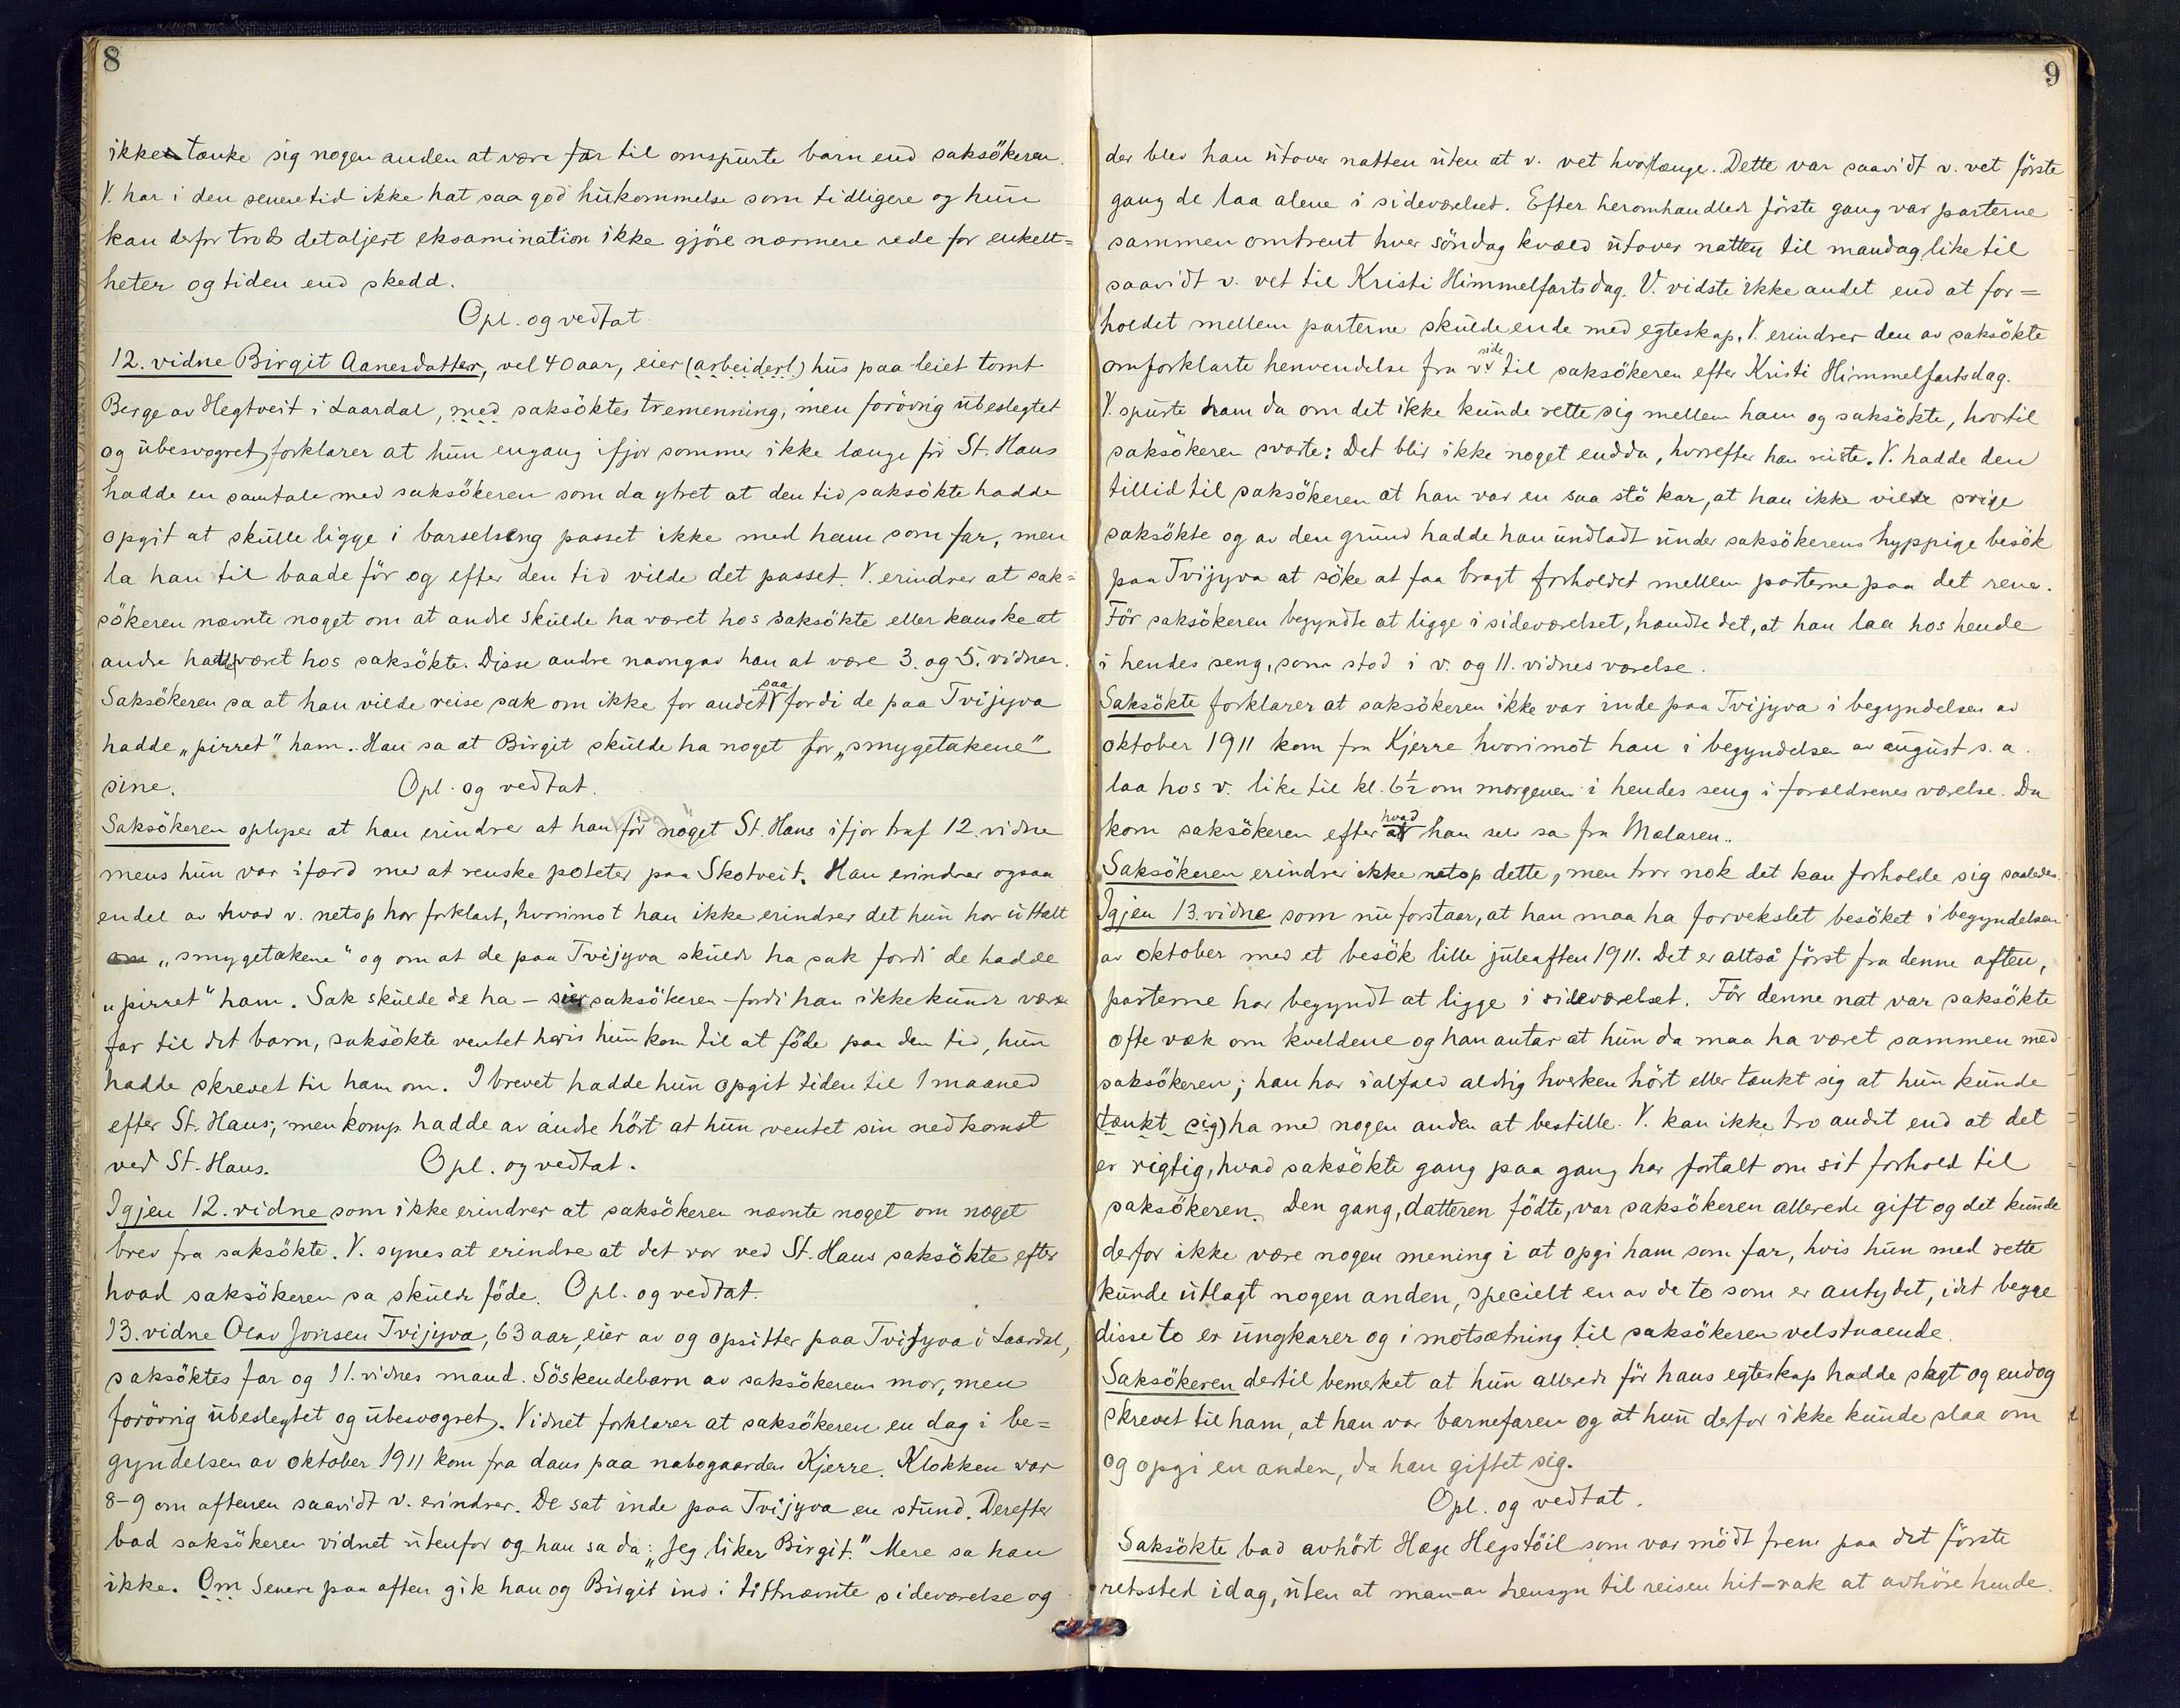 8
ikke tænke sig nogen anden at være far til omspurte barn end saksökeren.
V. har i den senere tid ikke hat saa god hukommelse som tidligere og hun
kan derfor trods detaljert eksamination ikke gjöre nærmere rede for enkelt=
heter og tiden end skedd.
Opl. og vedtat.
12. vidne Birgit Aanesdatter, vel 40 aar, eier (arbeiderl) hus paa leiet tomt
Berge av Hegtveit i Laardal, med saksöktes tremenning, men forövrig ubeslegtet
og ubesvogret, forklarer at hun engang ifjor sommer ikke længe för St. Hans
hadde en samtale med saksökeren som da ytret at den tid saksökte hadde
opgit at skulle ligge i barselseng passet ikke med ham som far, men
la han til baade för og efter den tid vilde det passet. V. erindrer at sak=
sökeren nævnte noget om at andre skulde ha været hos saksökte eller kanske at
andre hadde været hos saksökte. Disse andre navngav han at være 3. og 5. vidner.
Saksökeren sa at han vilde reise sak om ikke for andet saa fordi de paa Tvijyva
hadde „pirret" ham. Han sa at Birgit skulde ha noget for „smygetakene"
sine. Opl. og vedtat.
Saksökeren oplyser at han erindrer at han för noget St. Hans ifjor traf 12. vidne
mens hun var ifærd med at renske poteter paa Skotveit. Han erindrer ogsaa
endel av hvad v. netop har forklart, hvorimot han ikke erindrer det hun har uttalt
om „smygetakene" og om at de paa Tvijyva skulde ha sak fordi de hadde
„pirret" ham. Sak skulde de ha – sier saksökeren – fordi han ikke kunde være
far til det barn, saksökte ventet hvis hun kom til at föde paa den tid, hun
hadde skrevet til ham om. I brevet hadde hun opgit tiden til 1 maaned
efter St. Hans; men komp. hadde av andre hört at hun ventet sin nedkomst
ved St. Hans. Opl. og vedtat.
Igjen 12. vidne som ikke erindrer at saksökeren nævnte noget om noget
brev fra saksökte. V. synes at erindre at det var ved St. Hans saksökte efter
hvad saksökeren sa skulde föde. Opl. og vedtat.
13. vidne Olav Jonsen Tvijyva, 63 aar, eier av og opsitter paa Tvijyva i Laardal,
saksöktes far og 11. vidnes mand. Söskendebarn av saksökerens mor, men
forövrig ubeslegtet og ubesvogret. Vidnet forklarer at saksökeren en dag i be=
gyndelsen av oktober 1911 kom fra dans paa nabogaarden Kjerre. Klokken var
8-9 om aftenen saavidt v. erindrer. De sat inde paa Tvijyva en stund. Derefter
bad saksökeren vidnet utenfor og han sa da: „Jeg liker Birgit." Mere sa han
ikke. Om Senere paa aften gik han og Birgit ind i tiltnævnte sideværelse og
9
der blev han utover natten uten at v. vet hvor længe. Dette var saavidt v. vet förste
gang de laa alene i sideværelset. Efter heromhandlede förste gang var parterne
sammen omtrent hver söndag kvæld utover natten til mandag like til
saavidt v. vet til Kristi Himmelfartsdag. V. vidste ikke andet end at for=
holdet mellem parterne skulde ende med egteskap. V. erindrer den av saksökte
omforklarte henvendelse fra v.s side til saksökeren efter Kristi Himmelfartsdag.
V. spurte ham da om det ikke kunde rette sig mellem ham og saksökte, hvortil
saksökeren svarte: Det blir ikke noget endda, hvorefter han reiste. V. hadde den
tillid til saksökeren at han var en saa stö kar, at han ikke vilde svige
saksökte og av den grund hadde han undladt under saksökerens hyppige besök
paa Tvijyva at söke at faa bragt forholdet mellem parterne paa det rene.
För saksökeren begyndte at ligge i sideværelset, hændte det, at han laa hos hende
i hendes seng, som stod i v. og 11. vidnes værelse.
Saksökte forklarer at saksökeren ikke var inde paa Tvijyva i begyndelsen av
oktober 1911 kom fra Kjerre hvorimot han i begyndelsen av august s. a.
laa hos v. like til kl. 6½ om morgenen i hendes seng i forældrenes værelse. Da
kom saksökeren efter hvad han selv sa fra Mælaren.
Saksökeren erindrer ikke netop dette, men tror nok det kan forholde sig saaledes.
Igjen 13. vidne som nu forstaar, at han maa ha forvekslet besöket i begyndelsen
av oktober med et besök lille juleaften 1911. Det er altså först fra denne aften,
parterne har begyndt at ligge i sideværelset. För denne nat var saksökte
ofte væk om kveldene og han antar at hun da maa ha været sammen med
saksökeren; han har ialfald aldrig hverken hört eller tænkt sig at hun kunde
(tænkt sig) ha med nogen anden at bestille. V. kan ikke tro andet end at det
er rigtig, hvad saksökte gang paa gang har fortalt om sit forhold til
saksökeren. Den gang, datteren födte, var saksökeren allerede gift og det kunde
derfor ikke være nogen mening i at opgi ham som far, hvis hun med rette
kunde utlagt nogen anden, specielt en av de to som er antydet, idet begge
disse to er ungkarer og i motsætning til saksökeren velstaaende.
Saksökeren dertil bemerket at hun allerede för hans egteskap hadde sagt og endog
skrevet til ham, at han var barnefaren og at hun derfor ikke kunde slaa om
og opgi en anden, da han giftet sig.
Opl. og vedtat.
Saksökte bad avhört Hæge Hegstöil som var mödt frem paa det förste
retssted idag, uten at man – av hensyn til reisen hit – rak at avhöre hende.